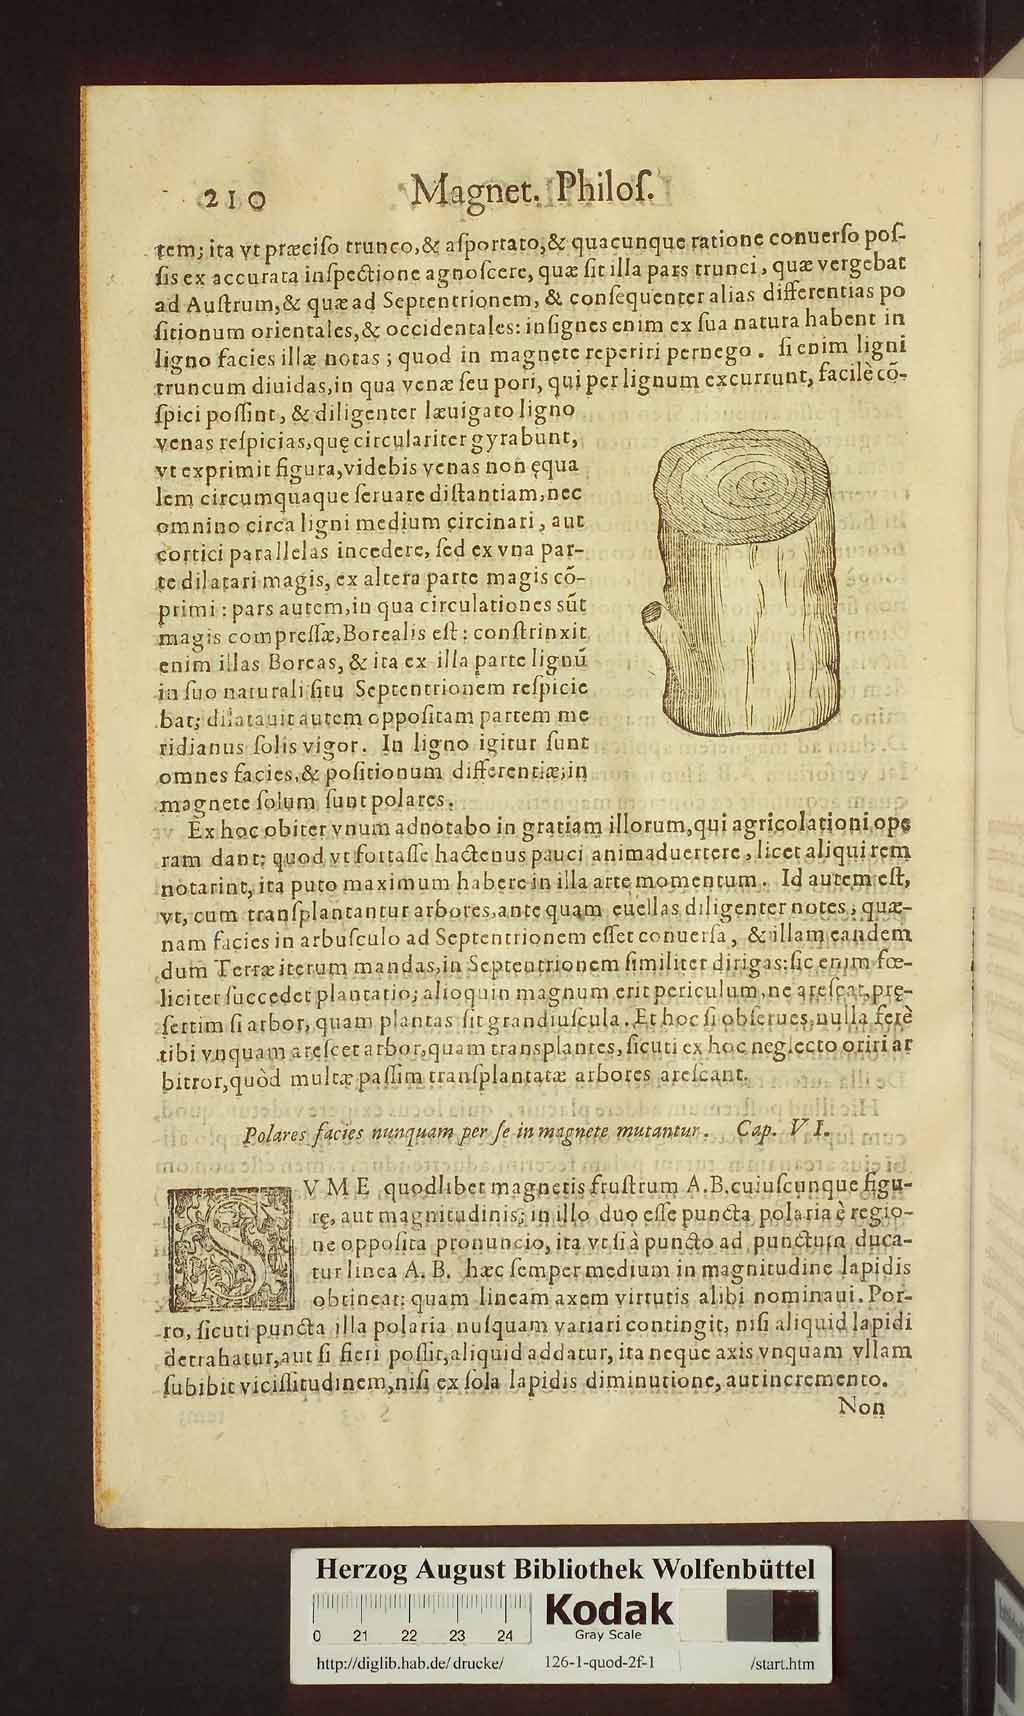 210 Magnet. Philoſ.
tem; ita vt præciſo trunco, & aſportato, & quacunque ratione conuerſo poſ-
ſis ex accurata inſpectione agnoſcere, quæ ſit illa pars trunci, quæ vergebat
ad Auſtrum, & quæ ad Septentrionem, & conſequenter alias differentias po
ſitionum orientales, & occidentales: inſignes enim ex ſua natura habent in
ligno facies illæ notas; quod in magnete reperiri pernego. ſi enim ligni
truncum diuidas, in qua venæ ſeu pori, qui per lignum excurrunt, facilè cõ-
ſpici poſſint, & diligenter læuigato ligno
venas reſpicias, quę circulariter gyrabunt,
vt exprimit figura, videbis venas non ęqua
lem circumquaque ſeruare diſtantiam, nec
omnino circa ligni medium circinari, aut
cortici parallelas incedere, ſed ex vna par-
te dilatari magis, ex altera parte magis cõ-
primi: pars autem, in qua circulationes sũt
magis compreſſæ, Borealis eſt: conſtrinxit
enim illas Boreas, & ita ex illa parte lignũ
in ſuo naturali ſitu Septentrionem reſpicie
bat; dilatauit autem oppoſitam partem me
ridianus ſolis vigor. In ligno igitur ſunt
omnes facies, & poſitionum differentiæ; in
magnete ſolum ſunt polares.
Ex hoc obiter vnum adnotabo in gratiam illorum, qui agricolationi ope
ram dant; quod vt fortaſſe hactenus pauci animaduertere, licet aliqui rem
notarint, ita puto maximum habere in illa arte momentum. Id autem eſt,
vt, cum tranſplantantur arbores, ante quam euellas diligenter notes, quæ-
nam facies in arbuſculo ad Septentrionem eſſet conuerſa, & illam eandem
dum Terræ iterum mandas, in Septentrionem ſimiliter dirigas: ſic enim fœ-
liciter ſuccedet plantatio; alioquin magnum erit periculum, ne areſcat, prę-
ſertim ſi arbor, quam plantas ſit grandiuſcula. Et hoc ſi obſerues, nulla ferè
tibi vnquam areſcet arbor, quam transplantes, ſicuti ex hoc neglecto oriri ar
bitror, quòd multæ paſſim tranſplantatæ arbores areſcant.
Polares facies nunquam per ſe in magnete mutantur. Cap. VI.
SVME quodlibet magnetis fruſtrum A.B. cuiuſcunque figu-
rę, aut magnitudinis; in illo duo eſſe puncta polaria è regio-
ne oppoſita pronuncio, ita vt ſi à puncto ad punctum duca-
tur linea A. B. hæc ſemper medium in magnitudine lapidis
obtineat: quam lineam axem virtutis alibi nominaui. Por-
ro, ſicuti puncta illa polaria nuſquam variari contingit, niſi aliquid lapidi
detrahatur, aut ſi fieri poſſit, aliquid addatur, ita neque axis vnquam vllam
ſubibit viciſſitudinem, niſi ex ſola lapidis diminutione, aut incremento.
Non
Herzog August Bibliothek Wolfenbüttel
Kodak
Gray Scale
0 21 22 23 24
http://diglib.hab.de/drucke/ 126-1-quod-2f-1 /start.htm